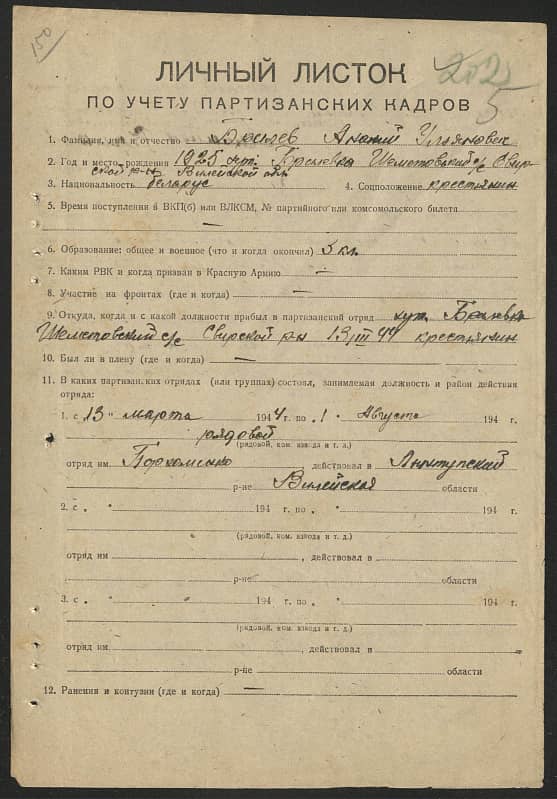 150
202
5
ЛИЧНЫЙ ЛИСТОК
ПО УЧЕТУ ПАРТИЗАНСКИХ КАДРОВ
1. Фамилия, имя и отчество Ульянович
2. Год и место рождения 1925 Шеметовский с/с Свир-
ской р-н Вилейской обл
3. Национальность беларус 4. Соцположение крестьянин
5. Время поступления в ВКП(б) или ВЛКСМ, № партийного или комсомольского билета
6. Образование: общее и военное (что и когда окончил) 3 кл.
7. Каким РВК и когда призван в Красную Армию —
8. Участие на фронтах (где и когда) —
9. Откуда, когда и с какой должности прибыл в партизанский отряд хут.
Шеметовский с/с Свирской р-н 13/III 44 крестьянин
10. Был ли в плену (где и когда) —
11. В каких партизанских отрядах (или группах) состоял, занимаемая должность и район действия
отряда:
1. с „13" марта 1944 г. по „1" Августа 194 г.
рядовой
(рядовой, ком. взвода и т. д.)
отряд им. Пархоменко действовал в Лынтупский
р-не Вилейская области
2. с „ " 194 г. по „ " 194 г.
(рядовой, ком. взвода и т. д.)
отряд им , действовал в
р-не области
3. с „ " 194 г. по „ " 194 г.
(рядовой, ком. взвода и т. д.)
отряд им , действовал в
р-не области
12. Ранения и контузии (где и когда) —